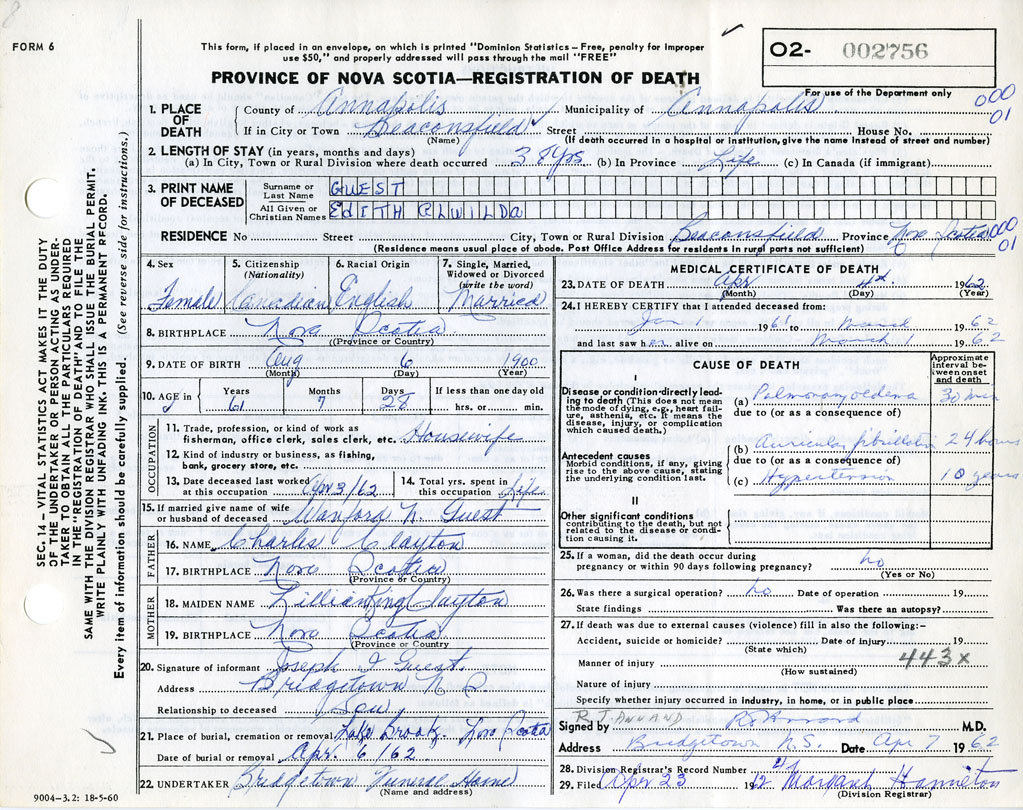 FORM 6
This form, if placed in an envelope, on which is printed "Dominion Statistics – Free, penalty for improper
use $50," and properly addressed will pass through the mail "FREE"
PROVINCE OF NOVA SCOTIA—REGISTRATION OF DEATH
O2- 002756
For use of the Department only
000
01
1. PLACE OF DEATH
County of Annapolis Municipality of Annapolis
If in City or Town Beaconsfield Street House No.
(Name) (If death occurred in a hospital or institution, give the name instead of street and number)
2. LENGTH OF STAY (in years, months and days)
(a) In City, Town or Rural Division where death occurred 38 yrs (b) In Province Life (c) In Canada (if immigrant)
3. PRINT NAME OF DECEASED
Surname or Last Name GUEST
All Given or Christian Names EDITH ELWILDA
RESIDENCE No Street City, Town or Rural Division Beaconsfield Province Nova Scotia 000
01
(Residence means usual place of abode. Post Office Address for residents in rural parts not sufficient)
4. Sex
Female
5. Citizenship
(Nationality)
Canadian
6. Racial Origin
English
7. Single, Married, Widowed or Divorced
(write the word)
Married
8. BIRTHPLACE Nova Scotia
(Province or Country)
9. DATE OF BIRTH Aug 6 1900
(Month) (Day) (Year)
10. AGE in
Years 61
Months 7
Days 28
If less than one day old
hrs. or min.
OCCUPATION
11. Trade, profession, or kind of work as
fisherman, office clerk, sales clerk, etc. Housewife
12. Kind of industry or business, as fishing,
bank, grocery store, etc.
13. Date deceased last worked
at this occupation Apr 3/62
14. Total yrs. spent in
this occupation Life
15. If married give name of wife
or husband of deceased Wanford N. Guest
FATHER
16. NAME Charles Clayton
17. BIRTHPLACE Nova Scotia
(Province or Country)
MOTHER
18. MAIDEN NAME Lillian King Clayton
19. BIRTHPLACE Nova Scotia
(Province or Country)
20. Signature of informant Joseph I Guest.
Address Bridgetown N S
Relationship to deceased Son
21. Place of burial, cremation or removal Lake Brook, Nova Scotia
Date of burial or removal Apr. 6/62
22. UNDERTAKER Bridgetown Funeral Home
(Name and address)
9004–3.2: 18-5-60
MEDICAL CERTIFICATE OF DEATH
23. DATE OF DEATH Apr 4th. 1962
(Month) (Day) (Year)
24. I HEREBY CERTIFY that I attended deceased from:
Jan 1 1961 to March 1962
and last saw her alive on March 1 1962
CAUSE OF DEATH
Approximate interval between onset and death
I
Disease or condition directly leading to death (This does not mean the mode of dying, e.g., heart failure, asthenia, etc. It means the disease, injury, or complication which caused death.)
(a) Pulmonary edema 30 min
due to (or as a consequence of)
(b) Auricular fibrillation 24 hours
Antecedent causes
Morbid conditions, if any, giving rise to the above cause, stating the underlying condition last.
due to (or as a consequence of)
(c) Hypertension 10 years
II
Other significant conditions
contributing to the death, but not related to the disease or condition causing it.
25. If a woman, did the death occur during
pregnancy or within 90 days following pregnancy? no
(Yes or No)
26. Was there a surgical operation? no Date of operation 19
State findings Was there an autopsy?
27. If death was due to external causes (violence) fill in also the following:–
Accident, suicide or homicide? Date of injury 19
(State which)
443x
Manner of injury
(How sustained)
Nature of injury
Specify whether injury occurred in industry, in home, or in public place
R. J. ANNAND
Signed by M.D.
Address Bridgetown N.S. Date Apr 7 1962
28. Division Registrar's Record Number 4
29. Filed Apr 23 1962 Hamilton
(Division Registrar)
SEC. 14 – VITAL STATISTICS ACT MAKES IT THE DUTY
OF THE UNDERTAKER OR PERSON ACTING AS UNDERTAKER TO OBTAIN ALL THE PARTICULARS REQUIRED
IN THE "REGISTRATION OF DEATH" AND TO FILE THE
SAME WITH THE DIVISION REGISTRAR WHO SHALL ISSUE THE BURIAL PERMIT.
WRITE PLAINLY WITH UNFADING INK. THIS IS A PERMANENT RECORD.
Every item of information should be carefully supplied. (See reverse side for instructions.)